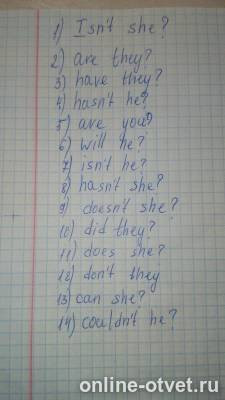 1) Isn't she?
2) are they?
3) have they?
4) hasn't he?
5) are you?
6) will he?
7) isn't he?
8) hasn't she?
9) doesn't she?
10) did they?
11) does she?
12) don't they
13) can she?
14) couldn't he?
online-otvet.ru